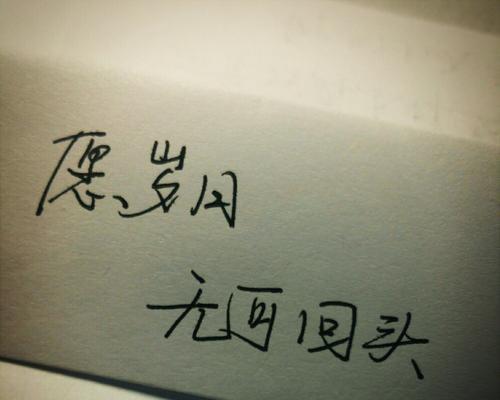 愿岁月
无可回头